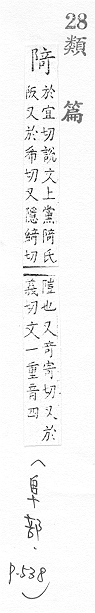 28類篇
陭
於宜切說文上黨陭氏
阪又於希切又隱綺切
𨻶也又奇寄切又於
義切文一重音四
(阜部,
p.538)